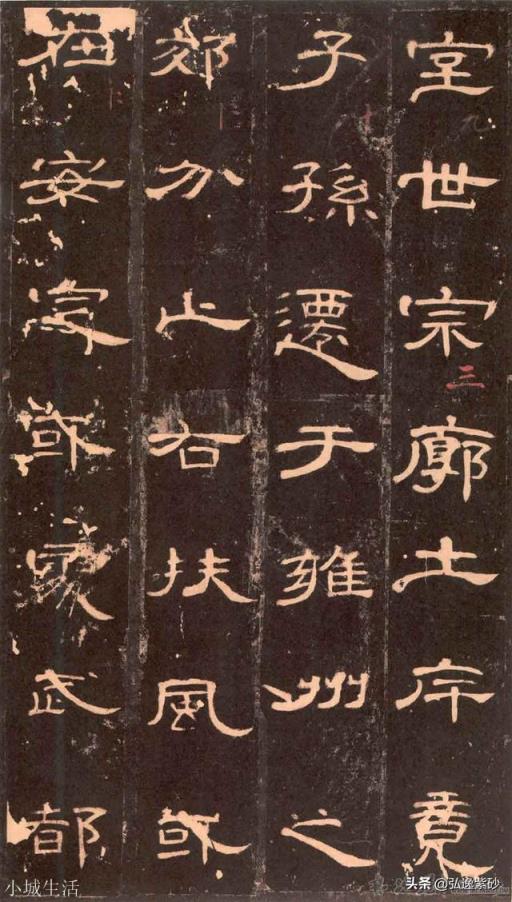 室世宗廓土斥竟
子孫遷于雍州之
郊分止右扶風或
在安定或處武都
三
十
九
小城生活
头条 @弘逸紫砂